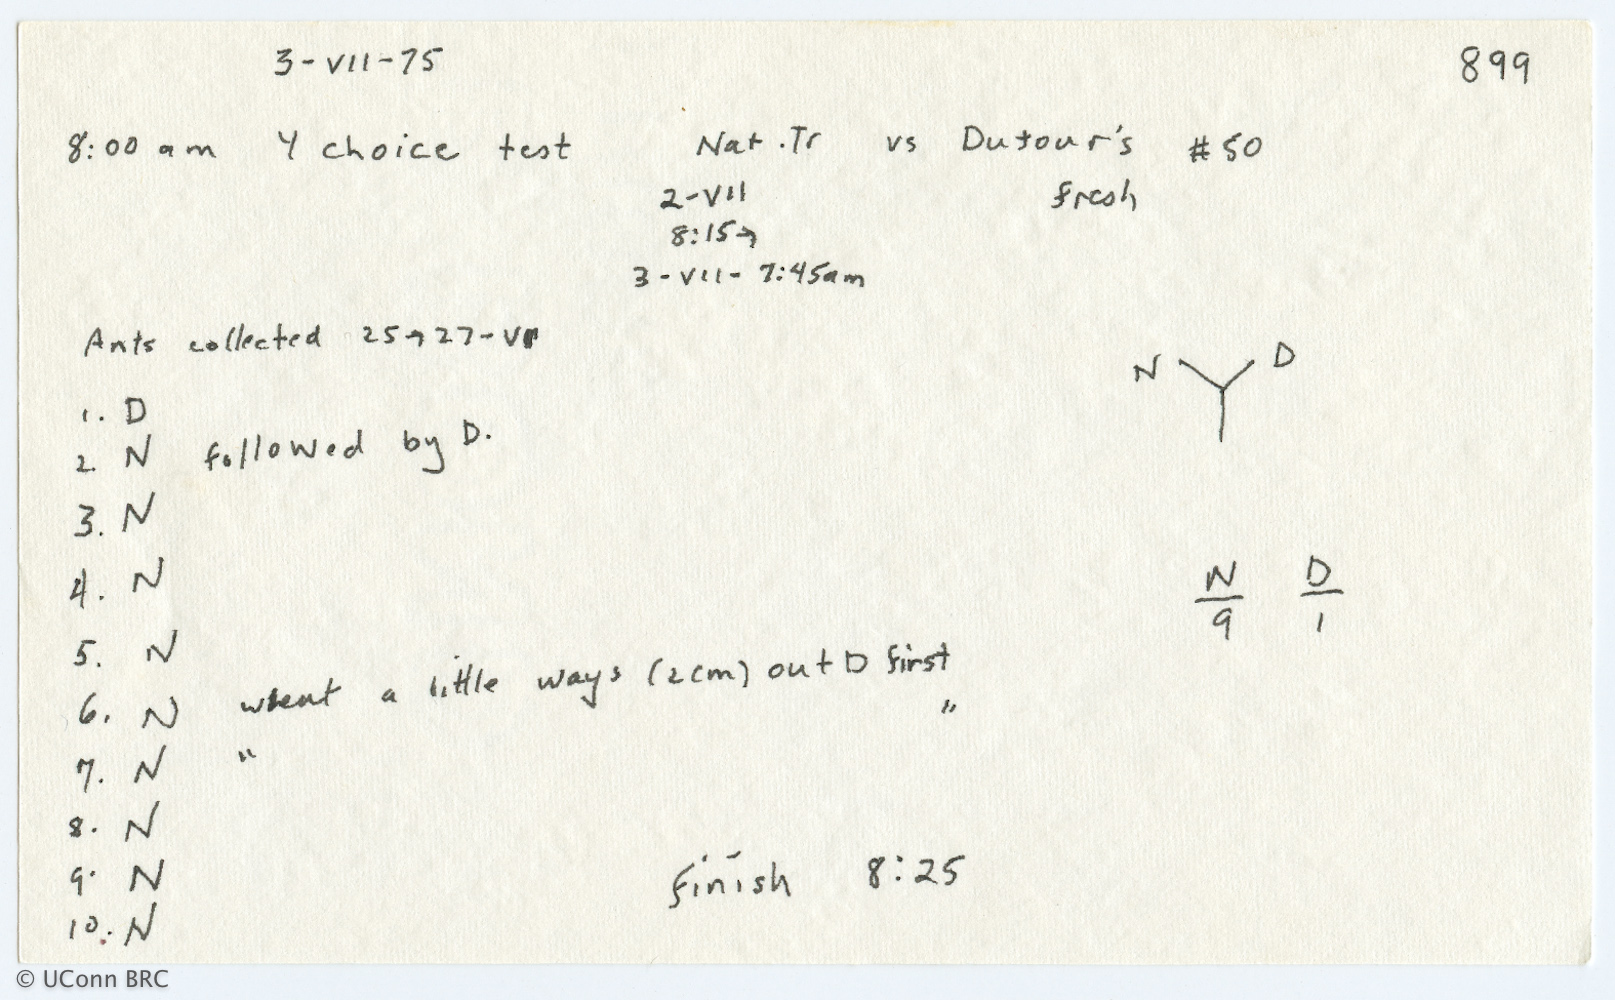 3-VII-75
899
8:00 am Y choice test Nat. Tr vs Dufour's #50
2-VII fresh
8:15→
3-VII- 7:45am
Ants collected 25→27-VI
N D
1. D
2. N followed by D.
3. N
4. N
N D
9 1
5. N
6. N went a little ways (2cm) out D first
7. N " "
8. N
9. N
10. N
finish 8:25
© UConn BRC